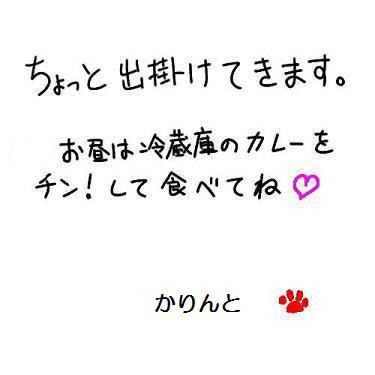 ちょっと出掛けてきます。
お昼は冷蔵庫のカレーを
チン!して食べてね♡
かりんと